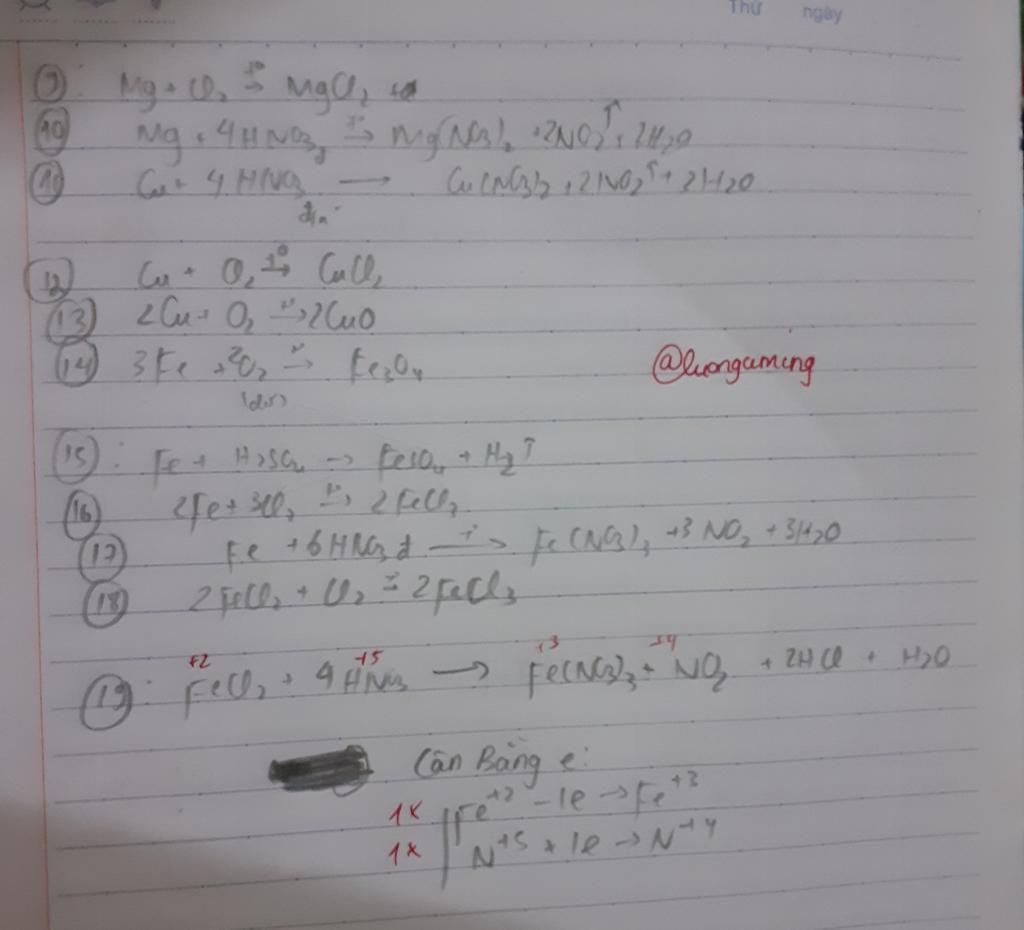 Thứ ngày
9: Mg + Cl₂ t°→ MgCl₂
10 Mg + 4HNO₃đ t°→ Mg(NO₃)₂ + 2NO₂↑ + 2H₂O
Cu + 4HNO₃ → Cu(NO₃)₂ + 2NO₂↑ + 2H₂O
12 Cu + Cl₂ t°→ CuCl₂
13 2Cu + O₂ t°→ 2CuO
14 3Fe + 2O₂ t°→ Fe₃O₄
@luongamung
15: Fe + H₂SO₄ → FeSO₄ + H₂↑
16 2Fe + 3Cl₂ t°→ 2FeCl₃
17 Fe + 6HNO₃ đ t°→ Fe(NO₃)₃ + 3NO₂ + 3H₂O
18 2FeCl₂ + Cl₂ t°→ 2FeCl₃
+2 +5 +3 +4
19: FeCl₂ + 4HNO₃ → Fe(NO₃)₃ + NO₂ + 2HCl + H₂O
Cân Bằng e:
1x Fe⁺² - 1e → Fe⁺³
1x N⁺⁵ + 1e → N⁺⁴